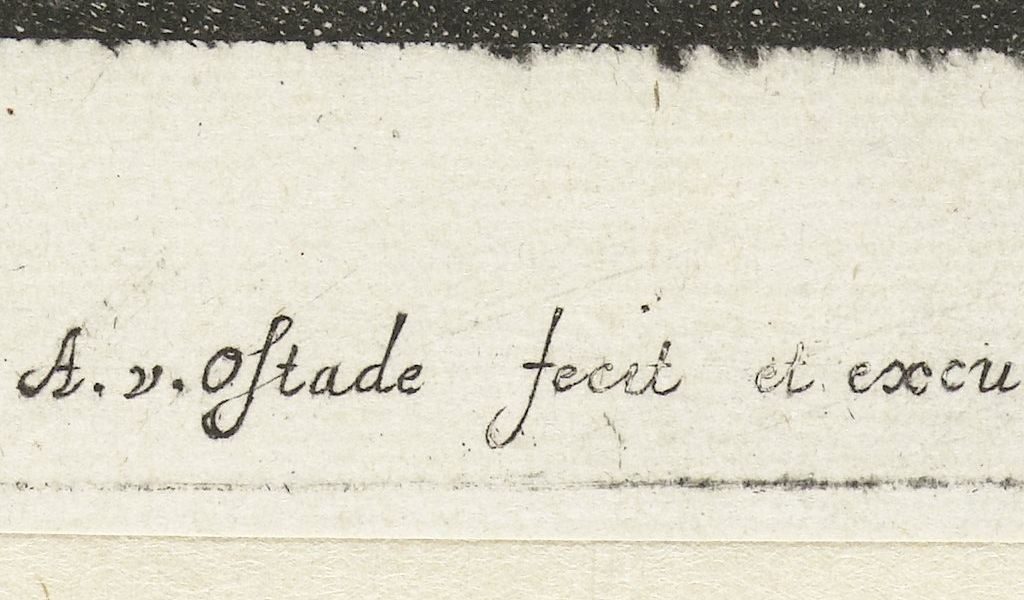 A. v. Oſtade fecit et excu